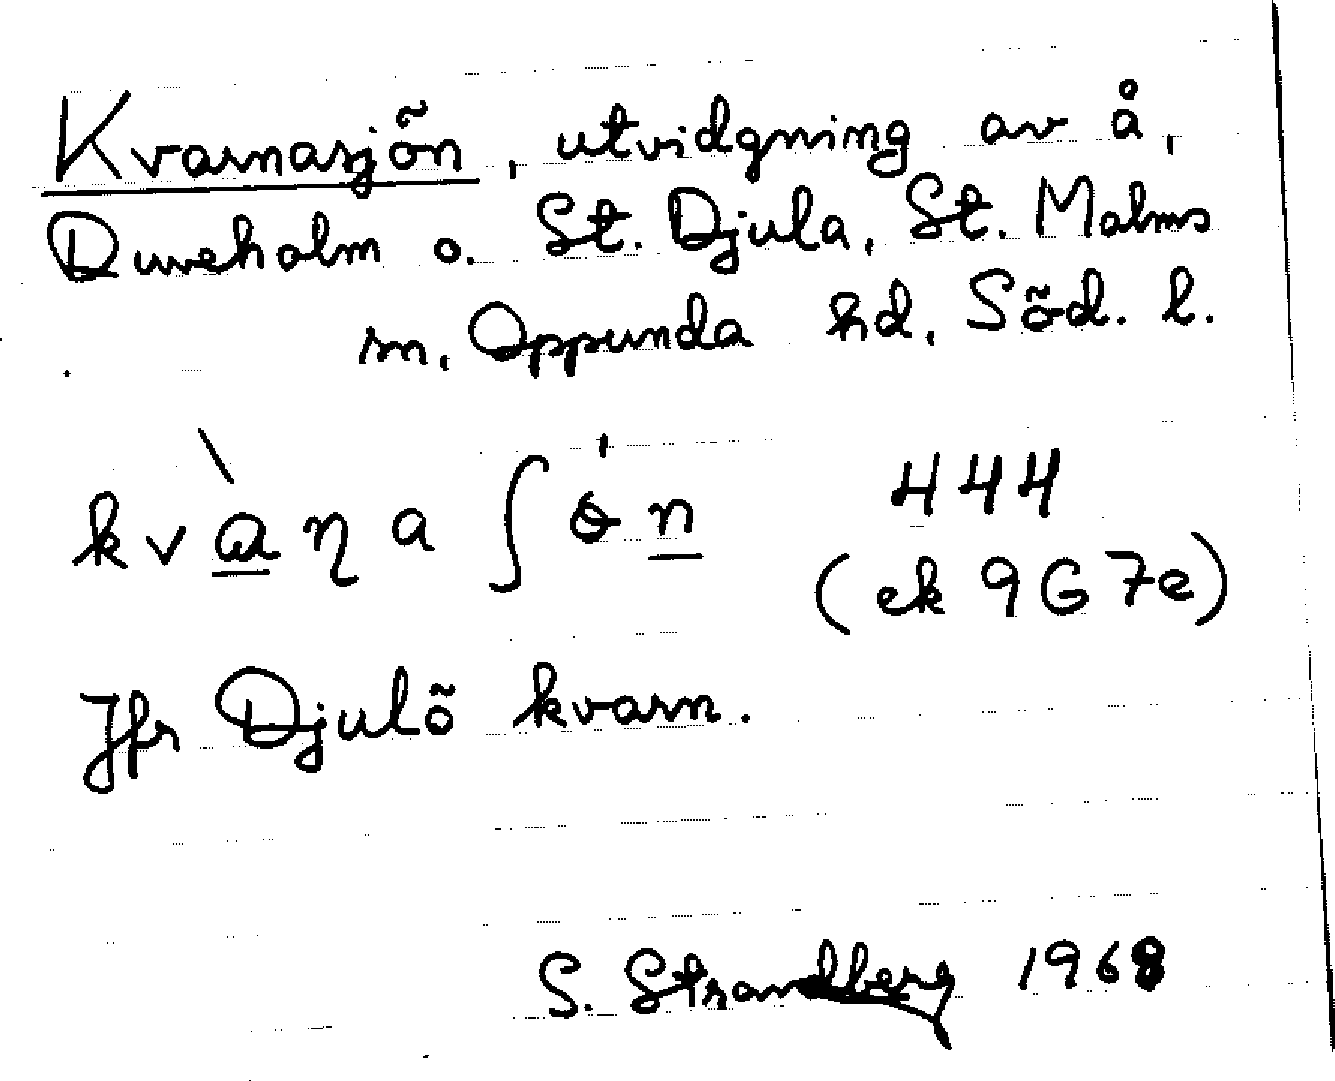 Kvarnasjön, utvidgning av å,
Duveholm o. St. Djula, St. Malms
sn, Oppunda hd, Söd. l.
kvàɳaʃɵn 444
(ek 9G7e)
Jfr Djulö kvarn.
S. Strandberg 1968